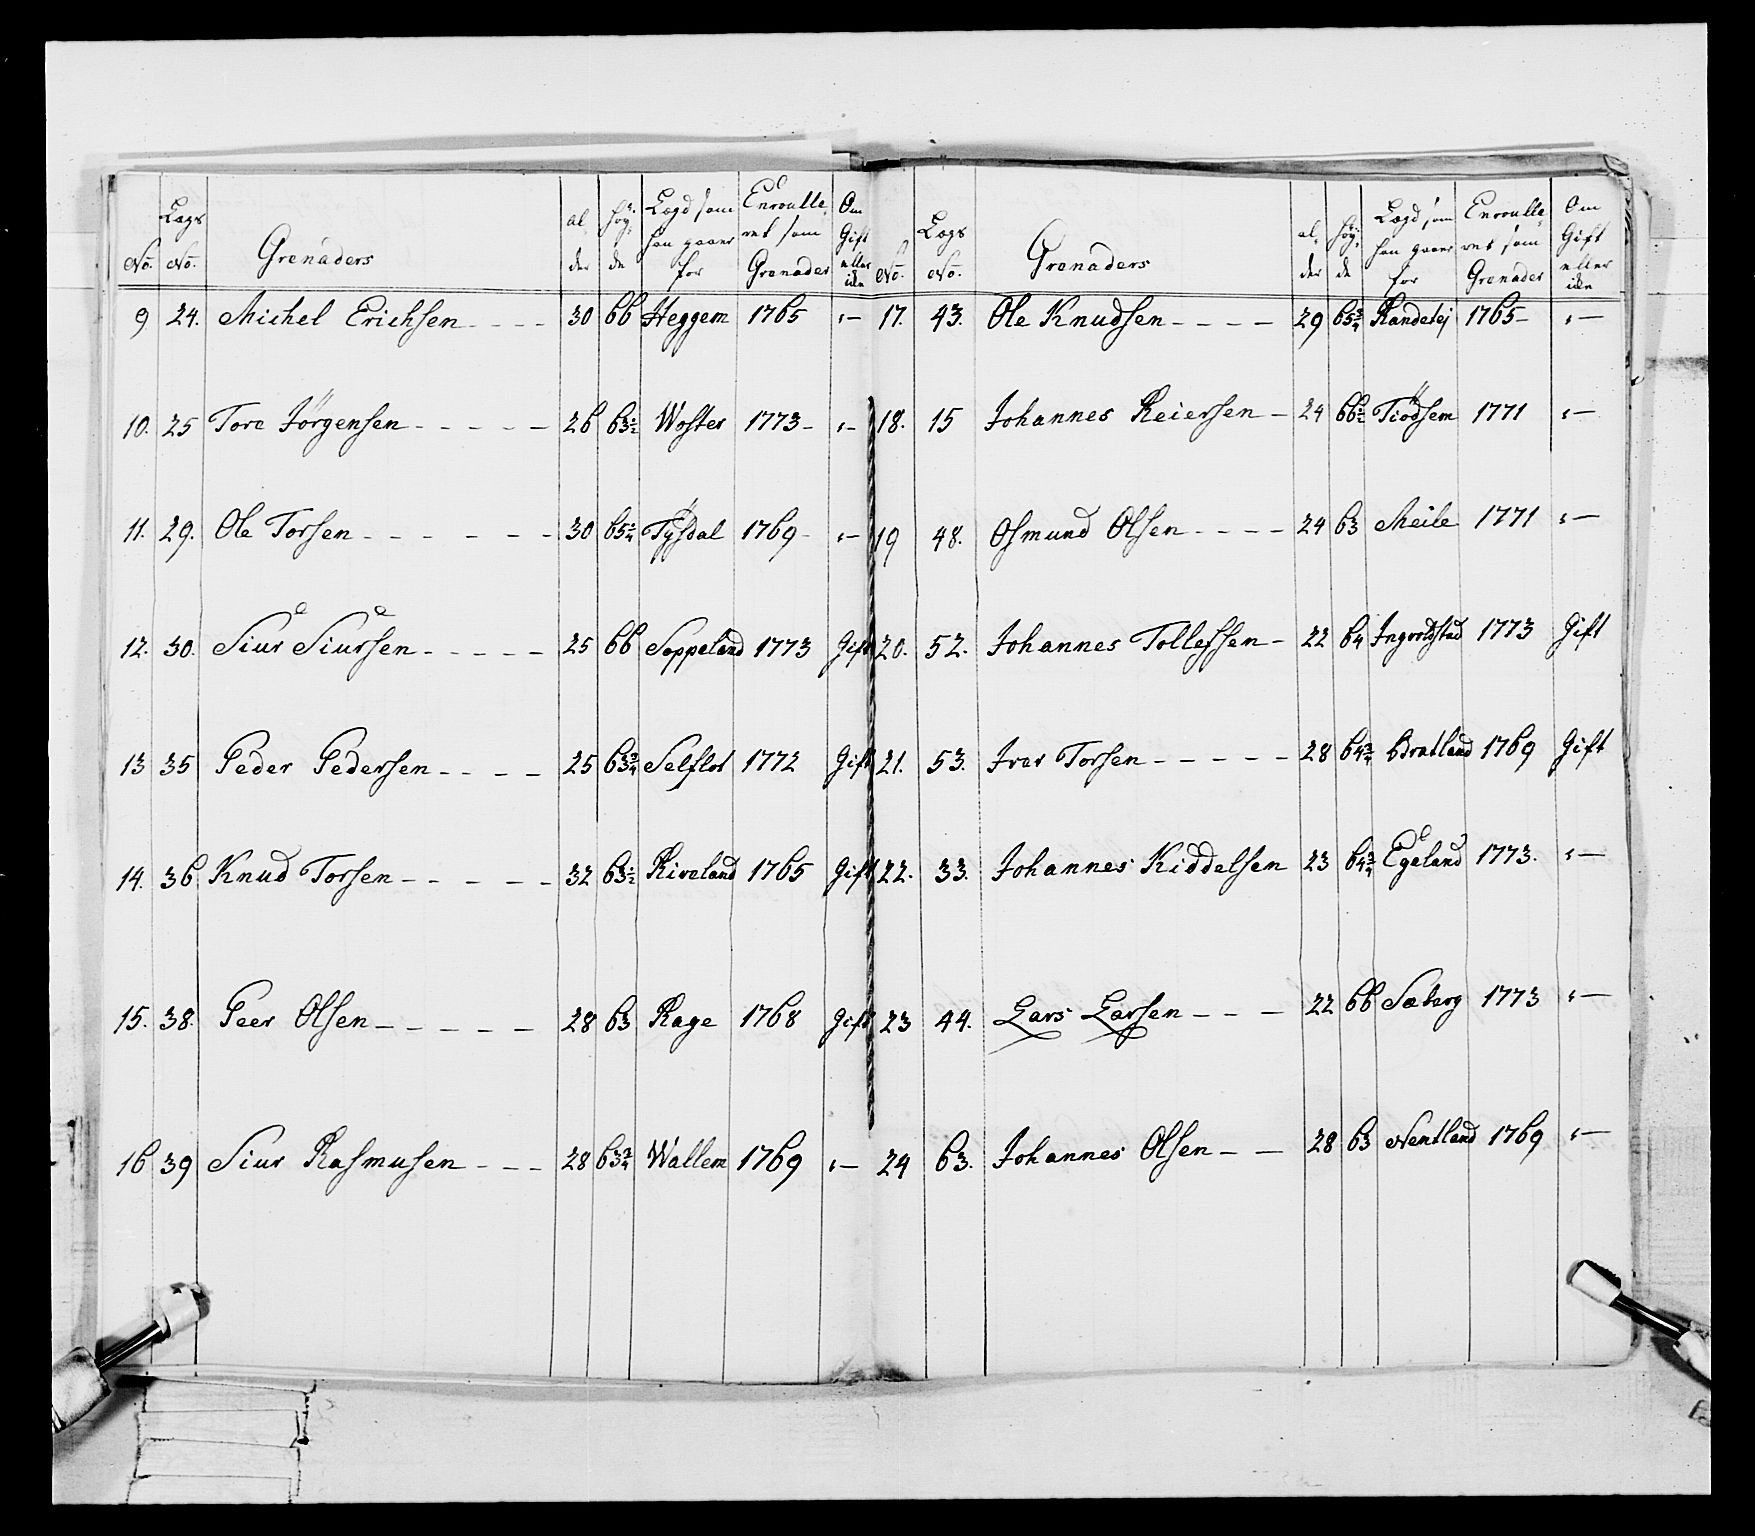 No. Lags No. Grenaders al der höy de Lægd som han gaaer for Enroulle ret som Grenader Om Gift eller ikke
9 24. Michel Erichsen - - - - 30 66 Heggem 1765 „—
10. 25 Tore Jörgensen - - - - - 26 63½ Woster 1773 - „—
11. 29. Ole Torsen - - - - - - 30 Tysdal 1769 - „—
12. 30. Siur Siursen - - - - - 25 66 Soppeland 1773 Gift
13 35 Peder Pedersen - - - - 25 63¾ Selflot 1772 Gift
14. 36 Knud Torsen - - - - - - 32 63½ Riveland 1765 Gift
15. 38. Peer Olsen - - - - - - 28 63 Rage 1768 Gift
16 39 Siur Rasmusen - - - 28 63¾ Wallem 1769 „—
No. Lags No. Grenaders al der höy de Lægd som han gaaer for Enroulle ret som Grenader Om Gift eller ikke
17. 43. Ole Knudsen - - - - 29 65¾ 1765 - „—
18. 15 Johannes Reiersen - 24 66½ Tiödsem 1771 „—
19 48. Osmund Olsen - - - - 24 63 Meile 1771 „—
20. 52. Johannes Tollefsen - 22 64 1773 Gift
21. 53. Iver Torsen - - - - - 28 64¾ Bratland 1769 Gift
22. 33. Johannes Kiddelsen 23 64¾ Egeland 1773. „—
23 44. Lars Larsen - - - 22 66 Sæberg 1773 „—
24 63. Johannes Olsen - - 28 63 Nentland 1769 „—